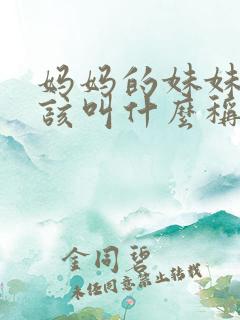 妈妈的妹妹
该叫什麼称
金同碧
未经同意禁止转载